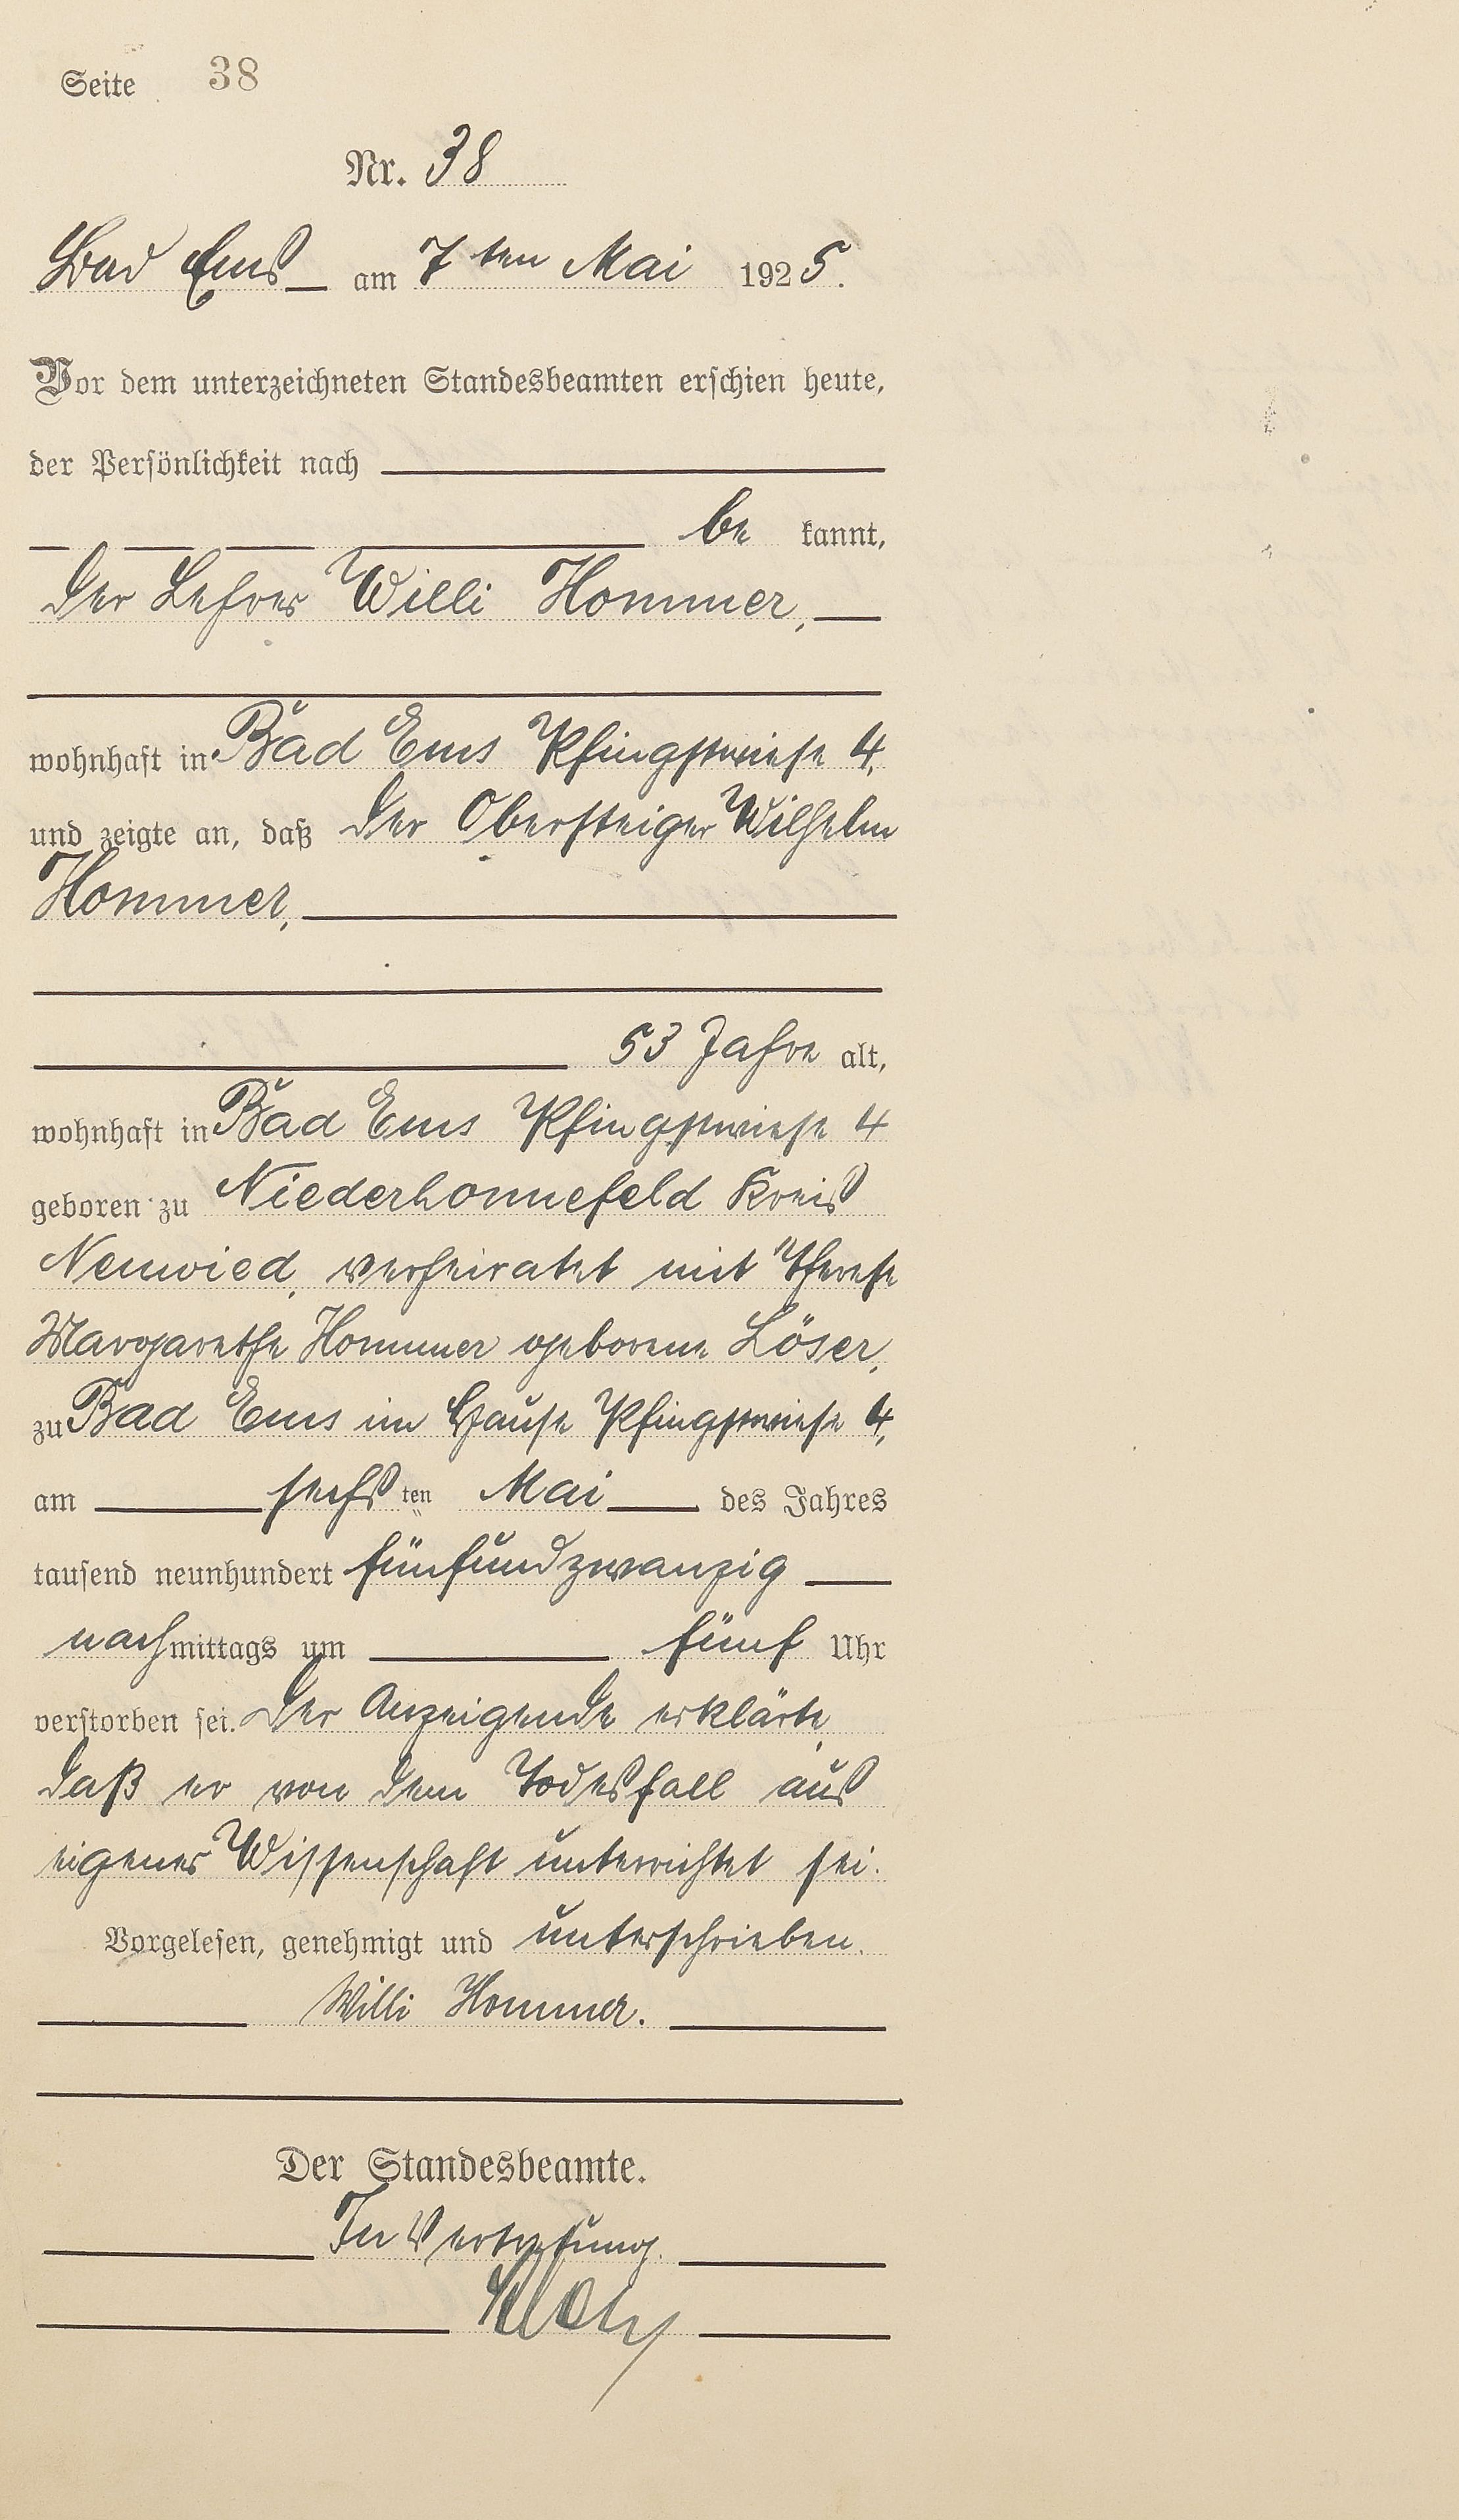 Seite 38
Nr. 38
Bad Ems am 7ten Mai 1925.
Vor dem unterzeichneten Standesbeamten erschien heute,
der Persönlichkeit nach
be kannt,
der Lehrer Willi Hommer,
wohnhaft in Bad Ems Pfingstwiese 4,
und zeigte an, daß der Obersteiger Wilhelm
Hommer,
53 Jahre alt,
wohnhaft in Bad Ems Pfingstwiese 4
geboren zu Niederhonnefeld Kreis
Neuwied, verheiratet mit Therese
Margarethe Hommer geborene Löser,
zu Bad Ems im Hause Pfingstwiese 4,
am sechsten Mai des Jahres
tausend neunhundert fünfundzwanzig
nachmittags um fünf Uhr
verstorben sei. Der Anzeigende erklärte,
daß er von dem Todesfall aus
eigener Wissenschaft unterrichtet sei.
Vorgelesen, genehmigt und unterschrieben.
Willi Hommer.
Der Standesbeamte.
In Vertretung.